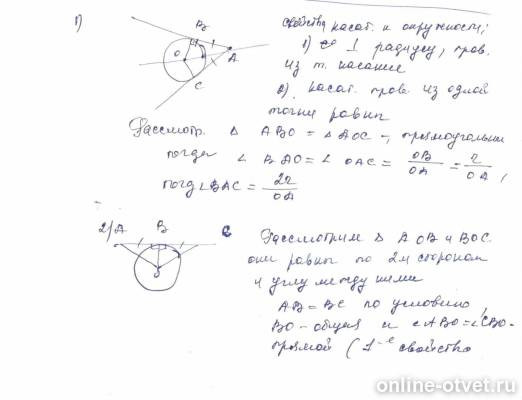 1)
B
O
A
C
свойства касат. к окружности;
1) ⊥ радиусу, пров.
из т. касания
2) касат. пров. из одной
точки равны
Рассмотр. △ ABO = △ AOC - прямоугольны
тогда ∠ BAO = ∠ OAC = OB/OA = r/OA,
тогда ∠BAC = 2r/OA
2) A B C
O
Рассмотрим △ AOB и BOC
они равны по 2м сторонам
и углу между ними
AB = BC по условию,
BO - общая и ∠ABO = ∠CBO -
прямой (1-е свойство
online-otvet.ru